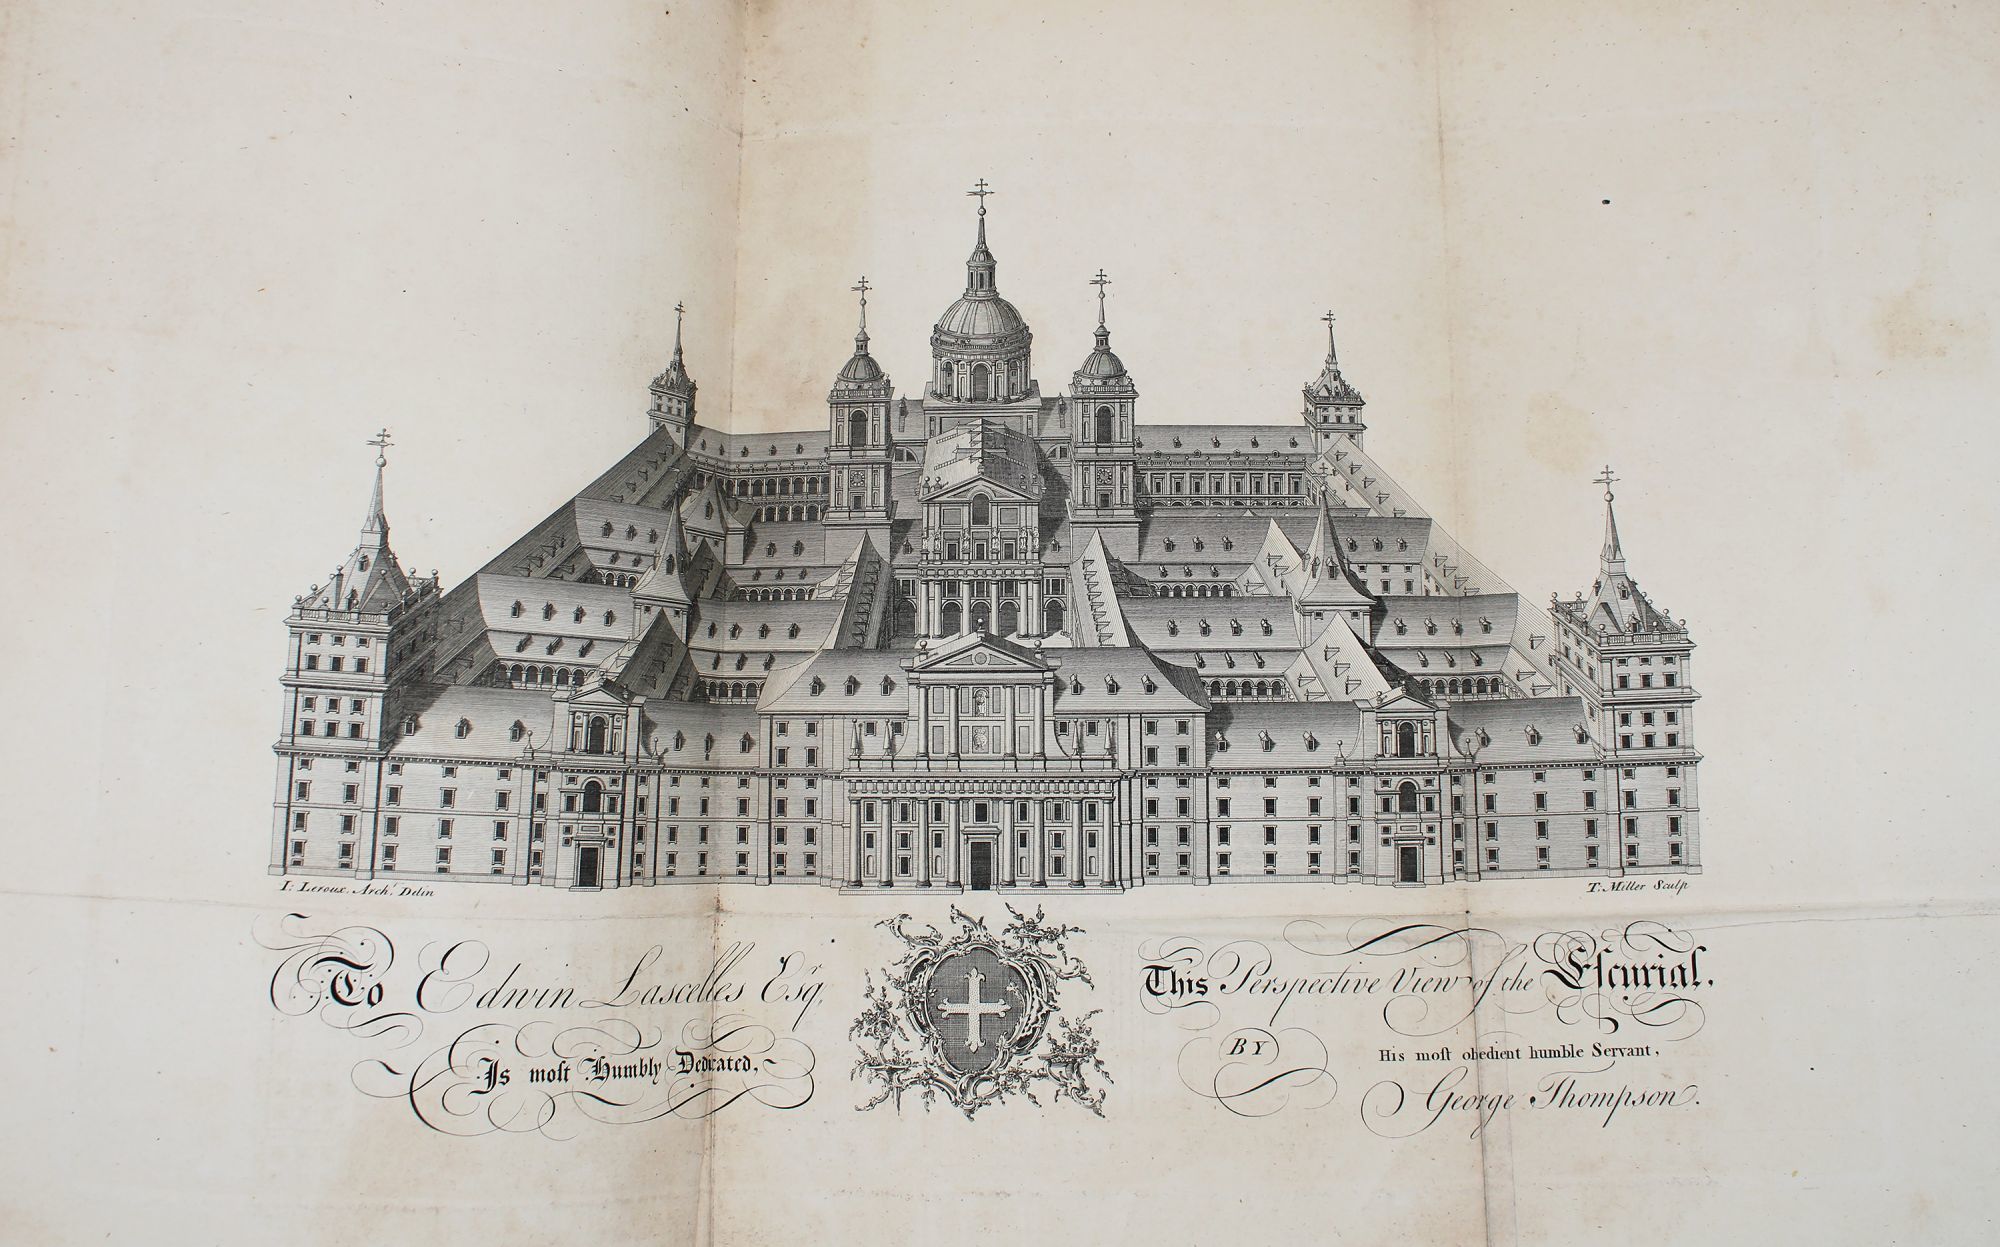 I: Leroux. Archt. Delin
T: Miller Sculp
To Edwin Lascelles Esqr,
Is moſt Humbly Dedicated,
This Perspective View of the Eſcurial,
BY
His moſt obedient humble Servant,
George Thompson.